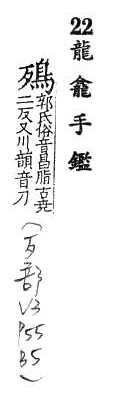 22龍龕手鑑
𩿊郭氏俗音昌脂古堯
二反又川韻音刀
(歹部
V3
P55
B5)